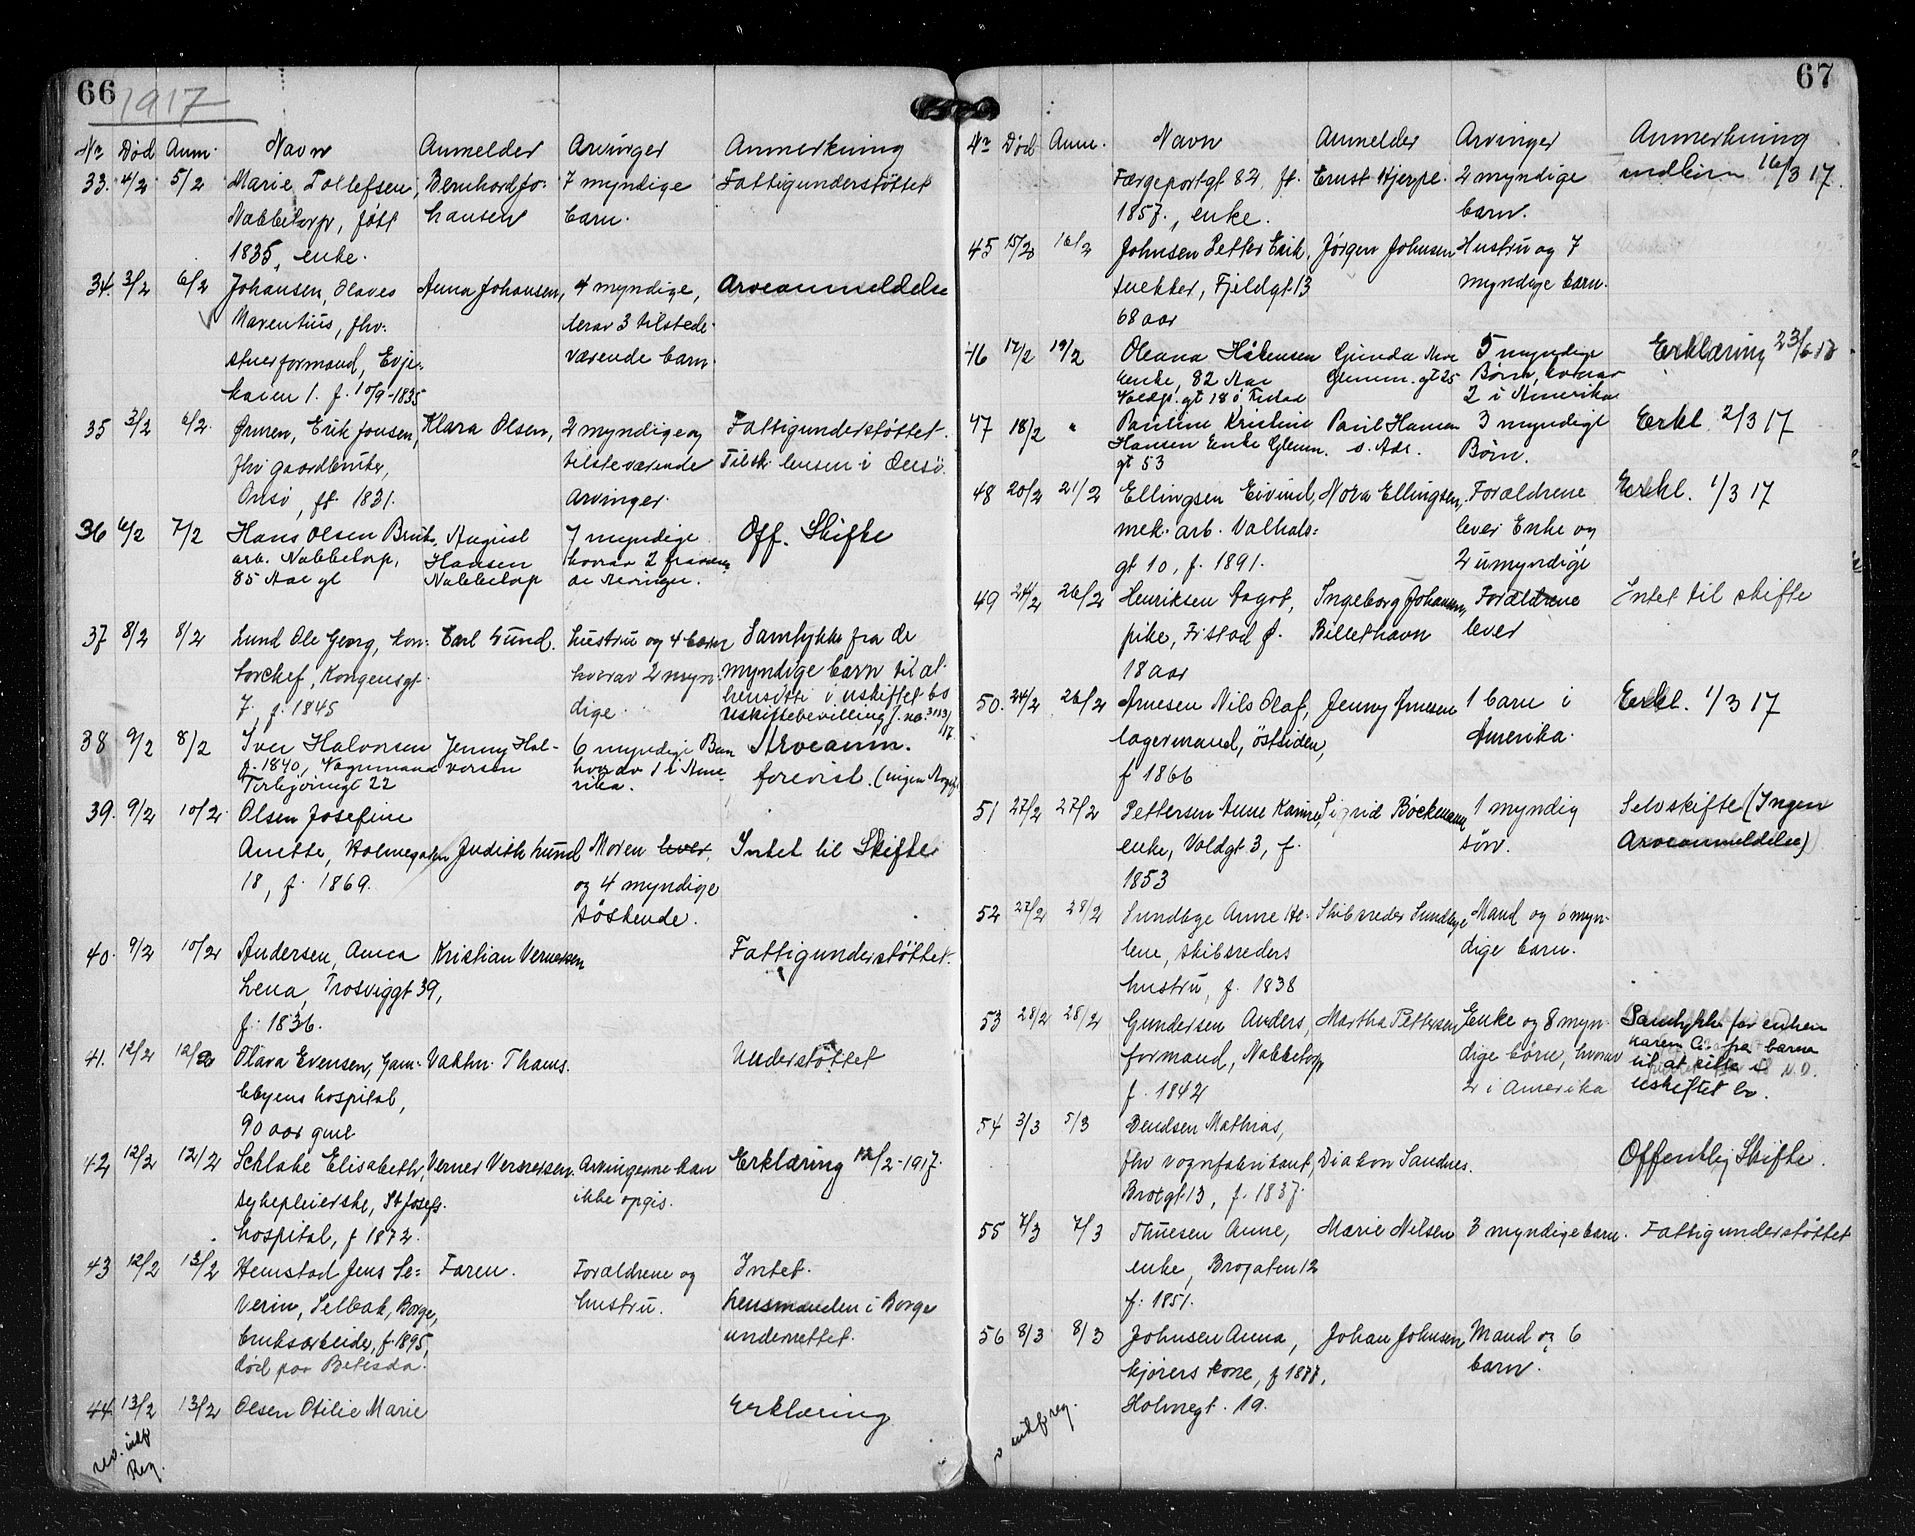 66
1917
Nr Død Anm. Navn Anmelder Arvinger Anmerkning
33. 4/2 5/2 Marie Tollefsen, Bernhard Jo- 7 myndige Fattigunderstøttet
Nabbetorp, født hansen barn.
1835, enke.
34. 3/2 6/2 Johansen, Olaves Anna Johansen, 4 myndige, Arveanmeldelse
Marentius, fhv. derav 3 tilstede-
stuerformand, Evje- værende barn.
kaien 1. f. 10/9-1835
35 3/2 6/2. Ørmen, Erik Jonsen, Klara Olsen, 2 myndige og Fattigunderstøttet.
fhv gaardbruker, tilsteværende Tilsk. lensm i Onsø.
Onsø, ff. 1831. Arvinger.
36 6/2 7/2 Hans Olsen Bruks August 7 myndige Off. Skifte
arb. Nabbetorp, Hansen hvorav 2
85 Aar gl Nabbetorp de Arvinger.
37 8/2 8/2 Lund Ole Georg, kon- Carl Lund. hustru og 4 barn Samtykke fra de
torchef, Kongensgt. hvorav 2 myn- myndige barn til at
7, f. 1845 dige. hensitte i uskiftet bo
Uskiftebevilling J. no. 3193/17.
38 9/2 8/2 Iver Halvorsen Jenny Hal- 6 myndige Barn Arveanm.
f. 1840, Vognmand versen hvorav 1 i Ame- forevist. (ingen
Ferkjøringt 22 rika.
39. 9/2 10/2. Olsen Josefine
Anette, Holmegaten Judith Lund Moren lever Intet til Skifte
18, f. 1869. og 4 myndige
søskende.
40. 9/2 10/2 Andersen, Anna Kristian Vernersen Fattigunderstøttet.
Lena, Trosviggt 39,
f. 1836.
41. 12/2 12/2 Olava Evensen, Gam- Vaktm. Thams. Understøttet
lebyens hospital,
90 aar gml
42 12/2 12/2 Schlake Elisabeth, Verner Vernersen. Arvingerne kan Erklæring 12/2-1917.
sykepleierske, St. Josefs. ikke opgis.
hospital, f 1872.
43 12/2 13/2 Hemstad Jens Se- Faren. Forældrene og Intet.
verin, Selbak, Borge, hustru. Lensmanden i Borge
bruksarbeider, f. 1895, underrettet.
død paa Betesda.
44. 13/2 13/2 Olsen Otilie Marie Erklæring
rev. indf
Reg.
67
Nr Død Anm. Navn Anmelder Arvinger Anmerkning
Færgeportgt 82, ff. Ernst Hjerpe. 2 myndige 16/3 17.
1857., enke. barn.
45 15/2 16/2 Johnsen Petter Erik, Jørgen Johnsen Hustru og 7
snekker, Fjeldgt 13 myndige barn.
68 aar
46 17/2 19/2 Oleana Håkensen Gunda Moe 5 myndige Erklæring 23/6 17
Enke, 82 Aar Glemm. gt 25 Børn, hvorav
Voldp. gt 18 Frstad 2 i Amerika
47 18/2 " Pauline Kristine Paul Hansen 3 myndige Erkl. 2/3 17
Hansen Enke Glemm. s. Adr. Børn.
gt 53
48 20/2 21/2 Ellingsen Eivind, Nora Ellingsen, Forældrene Erkl. 1/3 17
mek. arb. Valhals- lever Enke og
gt 10, f. 1891. 2 umyndige
49 24/2 26/2 Henriksen Dagot, Ingeborg Johansen, Forældrene Intet til skifte
pike, Fr.stad f. Billethavn lever
18 aar
50. 24/2 26/2 Arnesen Nils Olaf, Jenny Arnesen 1 barn i Erkl. 1/3 17
lagermand, østsiden, Amerika.
f 1866
51 27/2 27/2 Pettersen Anne Karine, Sigrid Bøckmann 1 myndig Selvskifte (Ingen
enke, Voldgt 3, f. søn. Arveanmeldelse)
1853
52 27/2 28/2 Sundbye Anne He- Skibsreder Sundbye Mand og 6 myn-
lene, skibsreders dige barn.
hustru, f. 1838
53 28/2 28/2 Gundersen Anders, Martha Pettersen Enke og 8 myn- Samtykke for enken
formand, Nabbetorp dige børn, hvorav Karen G. fra barna
f. 1842 2 i Amerika til at sitte i
uskiftet bo.
54 3/3 5/3 Bendsen Mathias,
fhv vognfabrikant, Diakon Sandnes. Offentlig Skifte.
Brogt 13, f. 1837.
55 7/3 7/3 Thuesen Anne, Marie Nilsen 3 myndige barn. Fattigunderstøttet
enke, Brogaten 12
f. 1851.
56 8/3 8/3 Johnsen Anna, Johan Johnsen Mand og 6
kjørers kone, f 1877, barn.
Holmegt. 19.
indf reg.